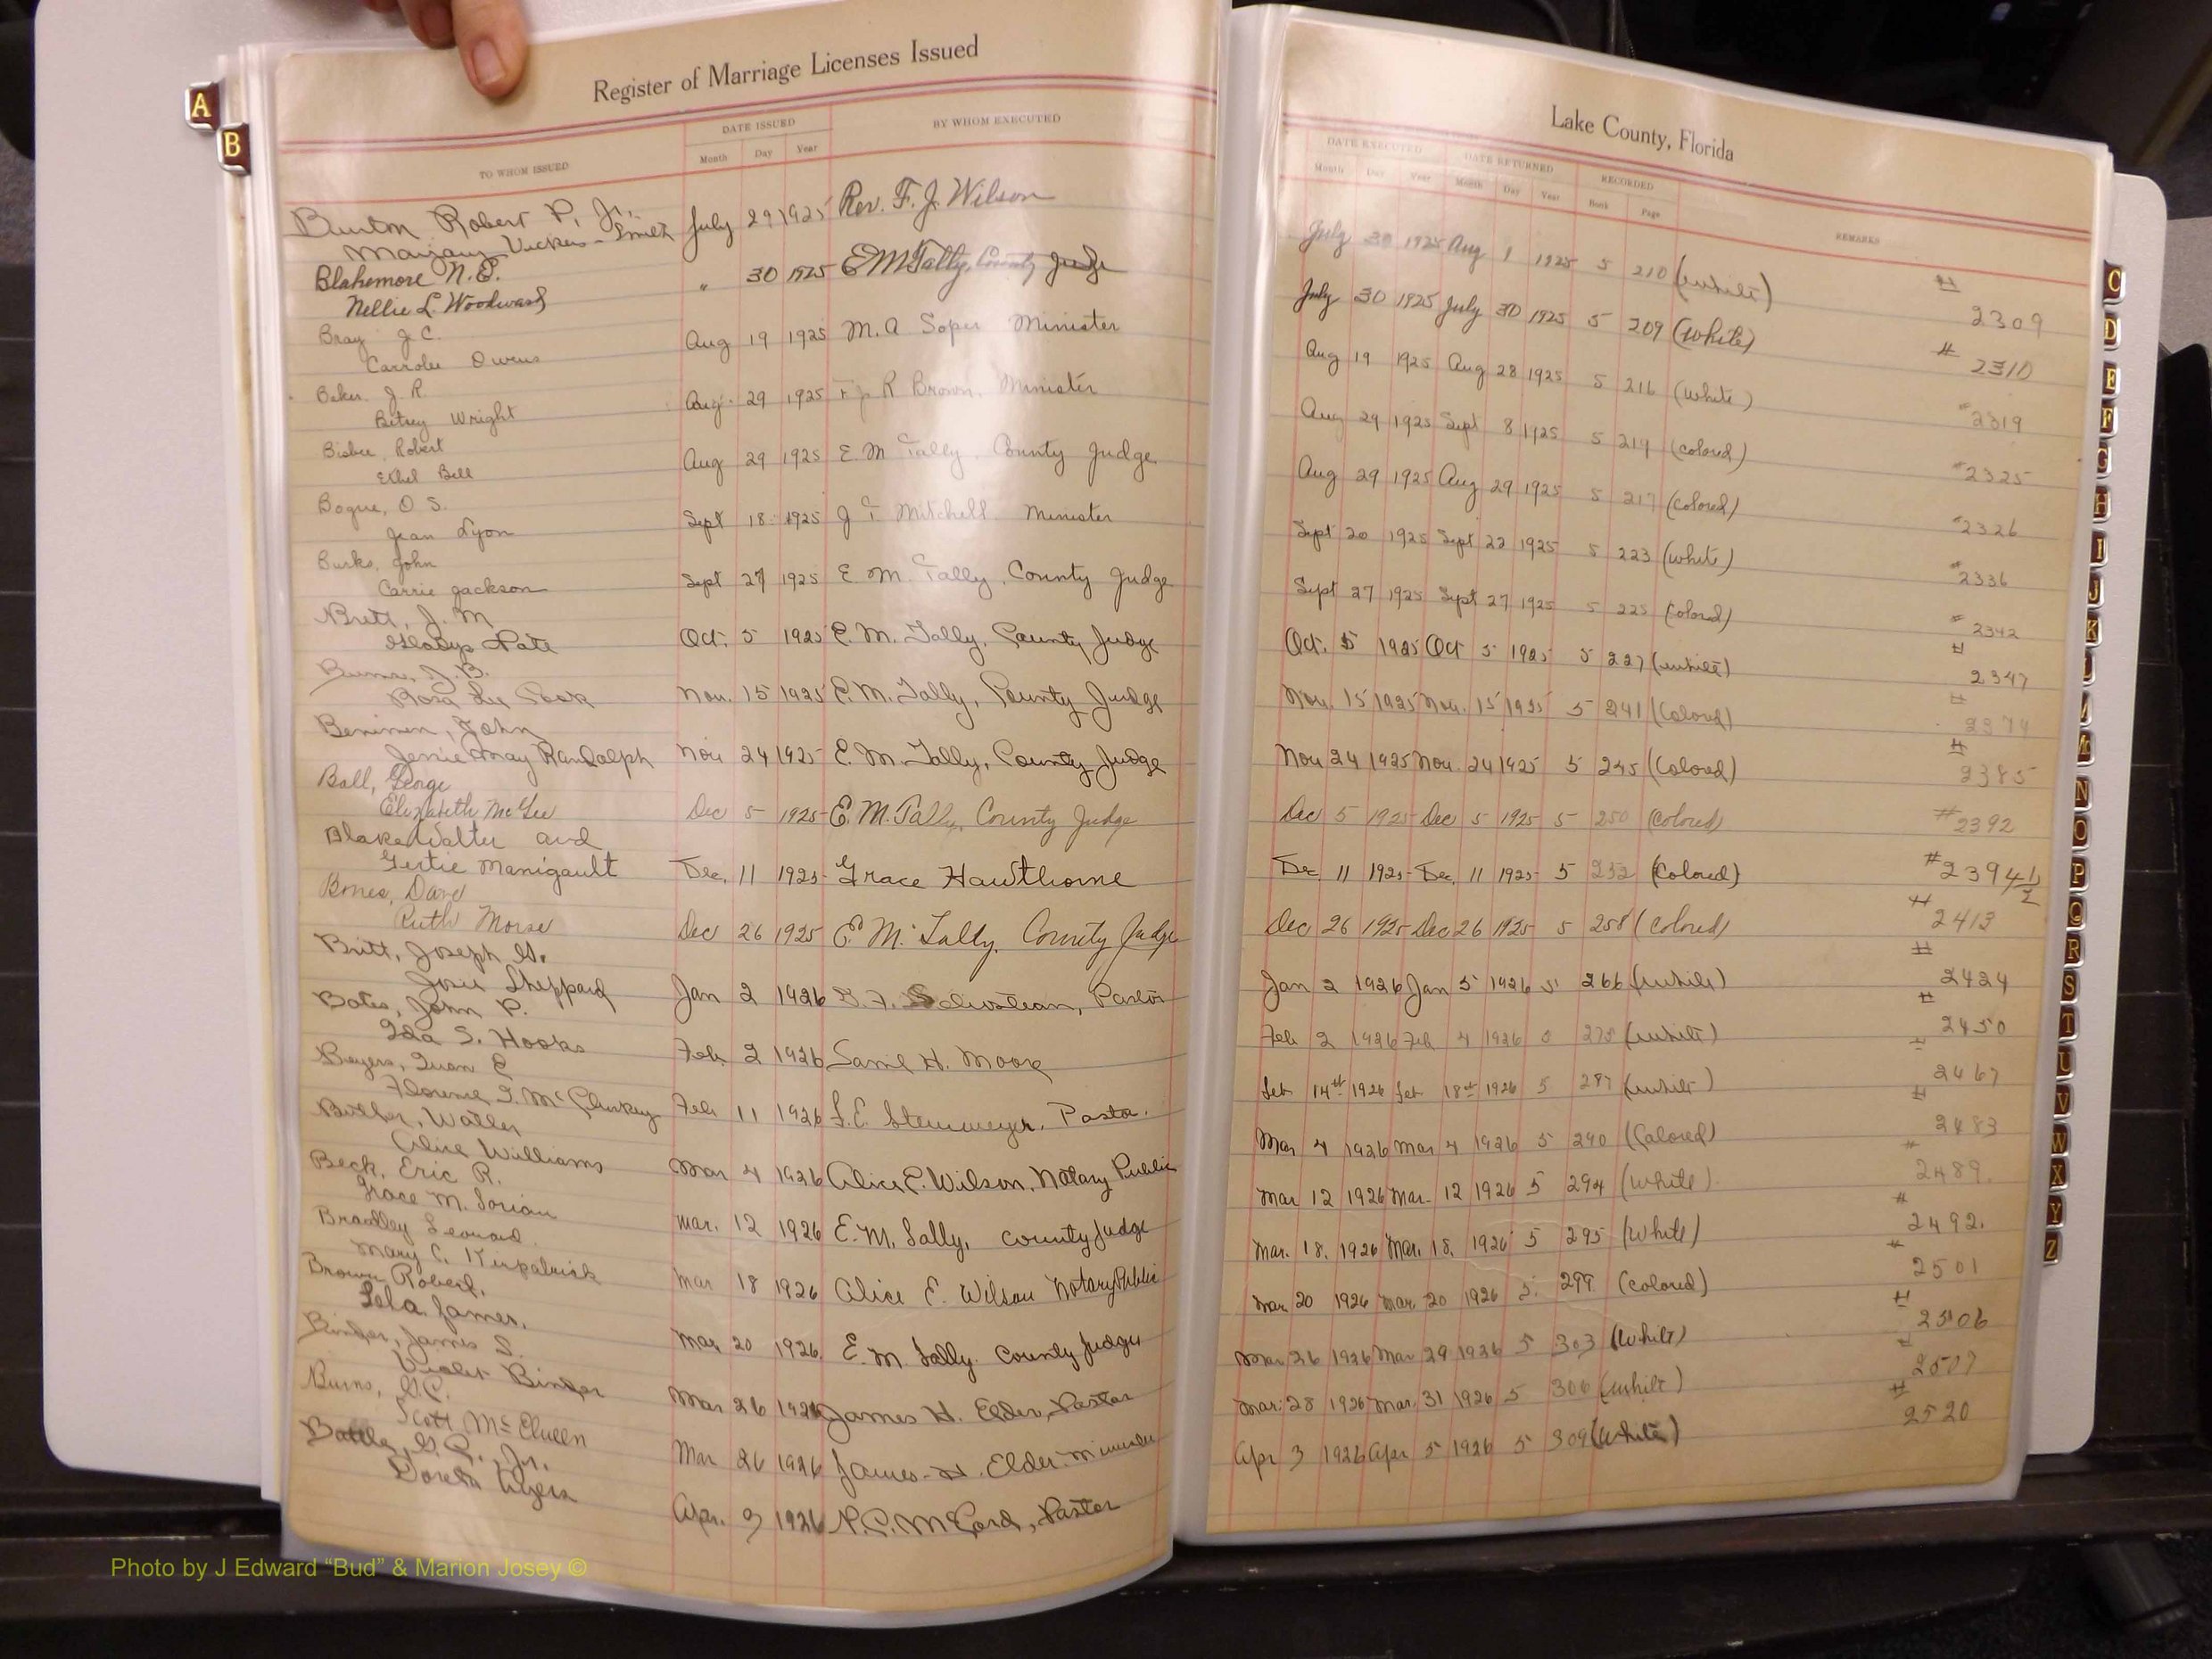 Register of Marriage Licenses Issued
TO WHOM ISSUED DATE ISSUED BY WHOM EXECUTED
Month Day Year
A
B
Burton Robert P. Jr. July 29 1925 Rev. F. J. Wilson
Marjary Vickers-Smith
Blakemore N.E. " 30 1925 E M Tally, County Judge
Nellie L. Woodward
Bray J C. Aug 19 1925 M. A Soper Minister
Carrolee Owens
Baker J. R. Aug. 29 1925 R Brown, Minister
Betsey Wright
Bisbee, Robert Aug 29 1925 E M Tally, County Judge
Ethel Bell
Bogue, O S. Sept 18 1925 J T Mitchell Minister
Jean Lyon
Burks, John Sept 27 1925 E M. Tally, County Judge
Carrie Jackson
Britt, J. M Oct. 5 1925 E. M. Tally, County Judge
Gladys Pate
J. B. Nov. 15 1925 E. M. Tally, County Judge
Rosa Lee
John Nov 24 1925 E. M. Tally, County Judge
Jennie May Randalph
Ball, George Dec 5 1925 E. M. Tally, County Judge
Elizabeth McGee
Blake Walter and Dec. 11 1925 Grace Hawthorne
Gertie Manigault
Bones, Dave Dec 26 1925 E. M. Tally, County Judge
Ruth Morse
Britt, Joseph G. Jan 2 1926 Pastor
Josie Sheppard
Bates, John P. Feb. 2 1926 Saml H. Moore
Ida S. Hooks
Feb 11 1926 Pastor.
Florence
Walter Mar 4 1926 Alice E. Wilson, Notary Public
Alice Williams
Beck, Eric R. Mar. 12 1926 E. M. Tally, County Judge
Grace M. Dorian
Bradley Leonard Mar 18 1926 Alice E. Wilson Notary Public
Mary C. Kirpatrick
Brown Robert, Mar 20 1926 E. M Tally. County Judge
Lela James.
Binder, James S. Mar 26 1926 James H. Elder, Pastor
Violet Binder
Burns, G.C. Mar 26 1926 James H. Elder Minister
Scott McClueen
Battle, G. R., Jr. Apr. 3 1926 McCord, Pastor
Doreta
Lake County, Florida
DATE EXECUTED DATE RETURNED RECORDED REMARKS
Month Day Year Month Day Year Book Page
July 30 1925 Aug 1 1925 5 210 (white) # 2309
July 30 1925 July 30 1925 5 209 (White) # 2310
Aug 19 1925 Aug 28 1925 5 216 (white) # 2319
Aug 29 1925 Sept 8 1925 5 219 (colored) # 2325
Aug 29 1925 Aug 29 1925 5 217 (colored) # 2326
Sept 20 1925 Sept 22 1925 5 223 (white) # 2336
Sept 27 1925 Sept 27 1925 5 225 (Colored) # 2342
Oct. 5 1925 Oct 5 1925 5 227 (white) # 2347
Nov. 15 1925 Nov. 15 1925 5 241 (Colored) # 2374
Nov 24 1925 Nov. 24 1925 5 245 (Colored) # 2385
Dec 5 1925 Dec 5 1925 5 250 (Colored) # 2392
Dec. 11 1925 Dec. 11 1925 5 252 (Colored) # 2394 1/2
Dec 26 1925 Dec 26 1925 5 258 (Colored) # 2413
Jan 2 1926 Jan 5 1926 5 266 (white) # 2424
Feb 2 1926 Feb 4 1926 5 275 (white) # 2450
Feb 14th 1926 Feb 18th 1926 5 287 (white) # 2467
Mar 4 1926 Mar 4 1926 5 290 (Colored) # 2483
Mar 12 1926 Mar. 12 1926 5 294 (White) # 2489.
Mar. 18. 1926 Mar. 18. 1926 5 295 (White) # 2492.
Mar 20 1926 Mar 20 1926 5 299 (Colored) # 2501
Mar 26 1926 Mar 29 1926 5 303 (White) # 2506
Mar. 28 1926 Mar. 31 1926 5 306 (white) # 2507
Apr 3 1926 Apr 5 1926 5 309 (White) # 2520
C
D
E
F
G
H
I
J
K
M
N
O
P
Q
R
S
T
U
V
W
X
Y
Z
Photo by J Edward “Bud” & Marion Josey ©